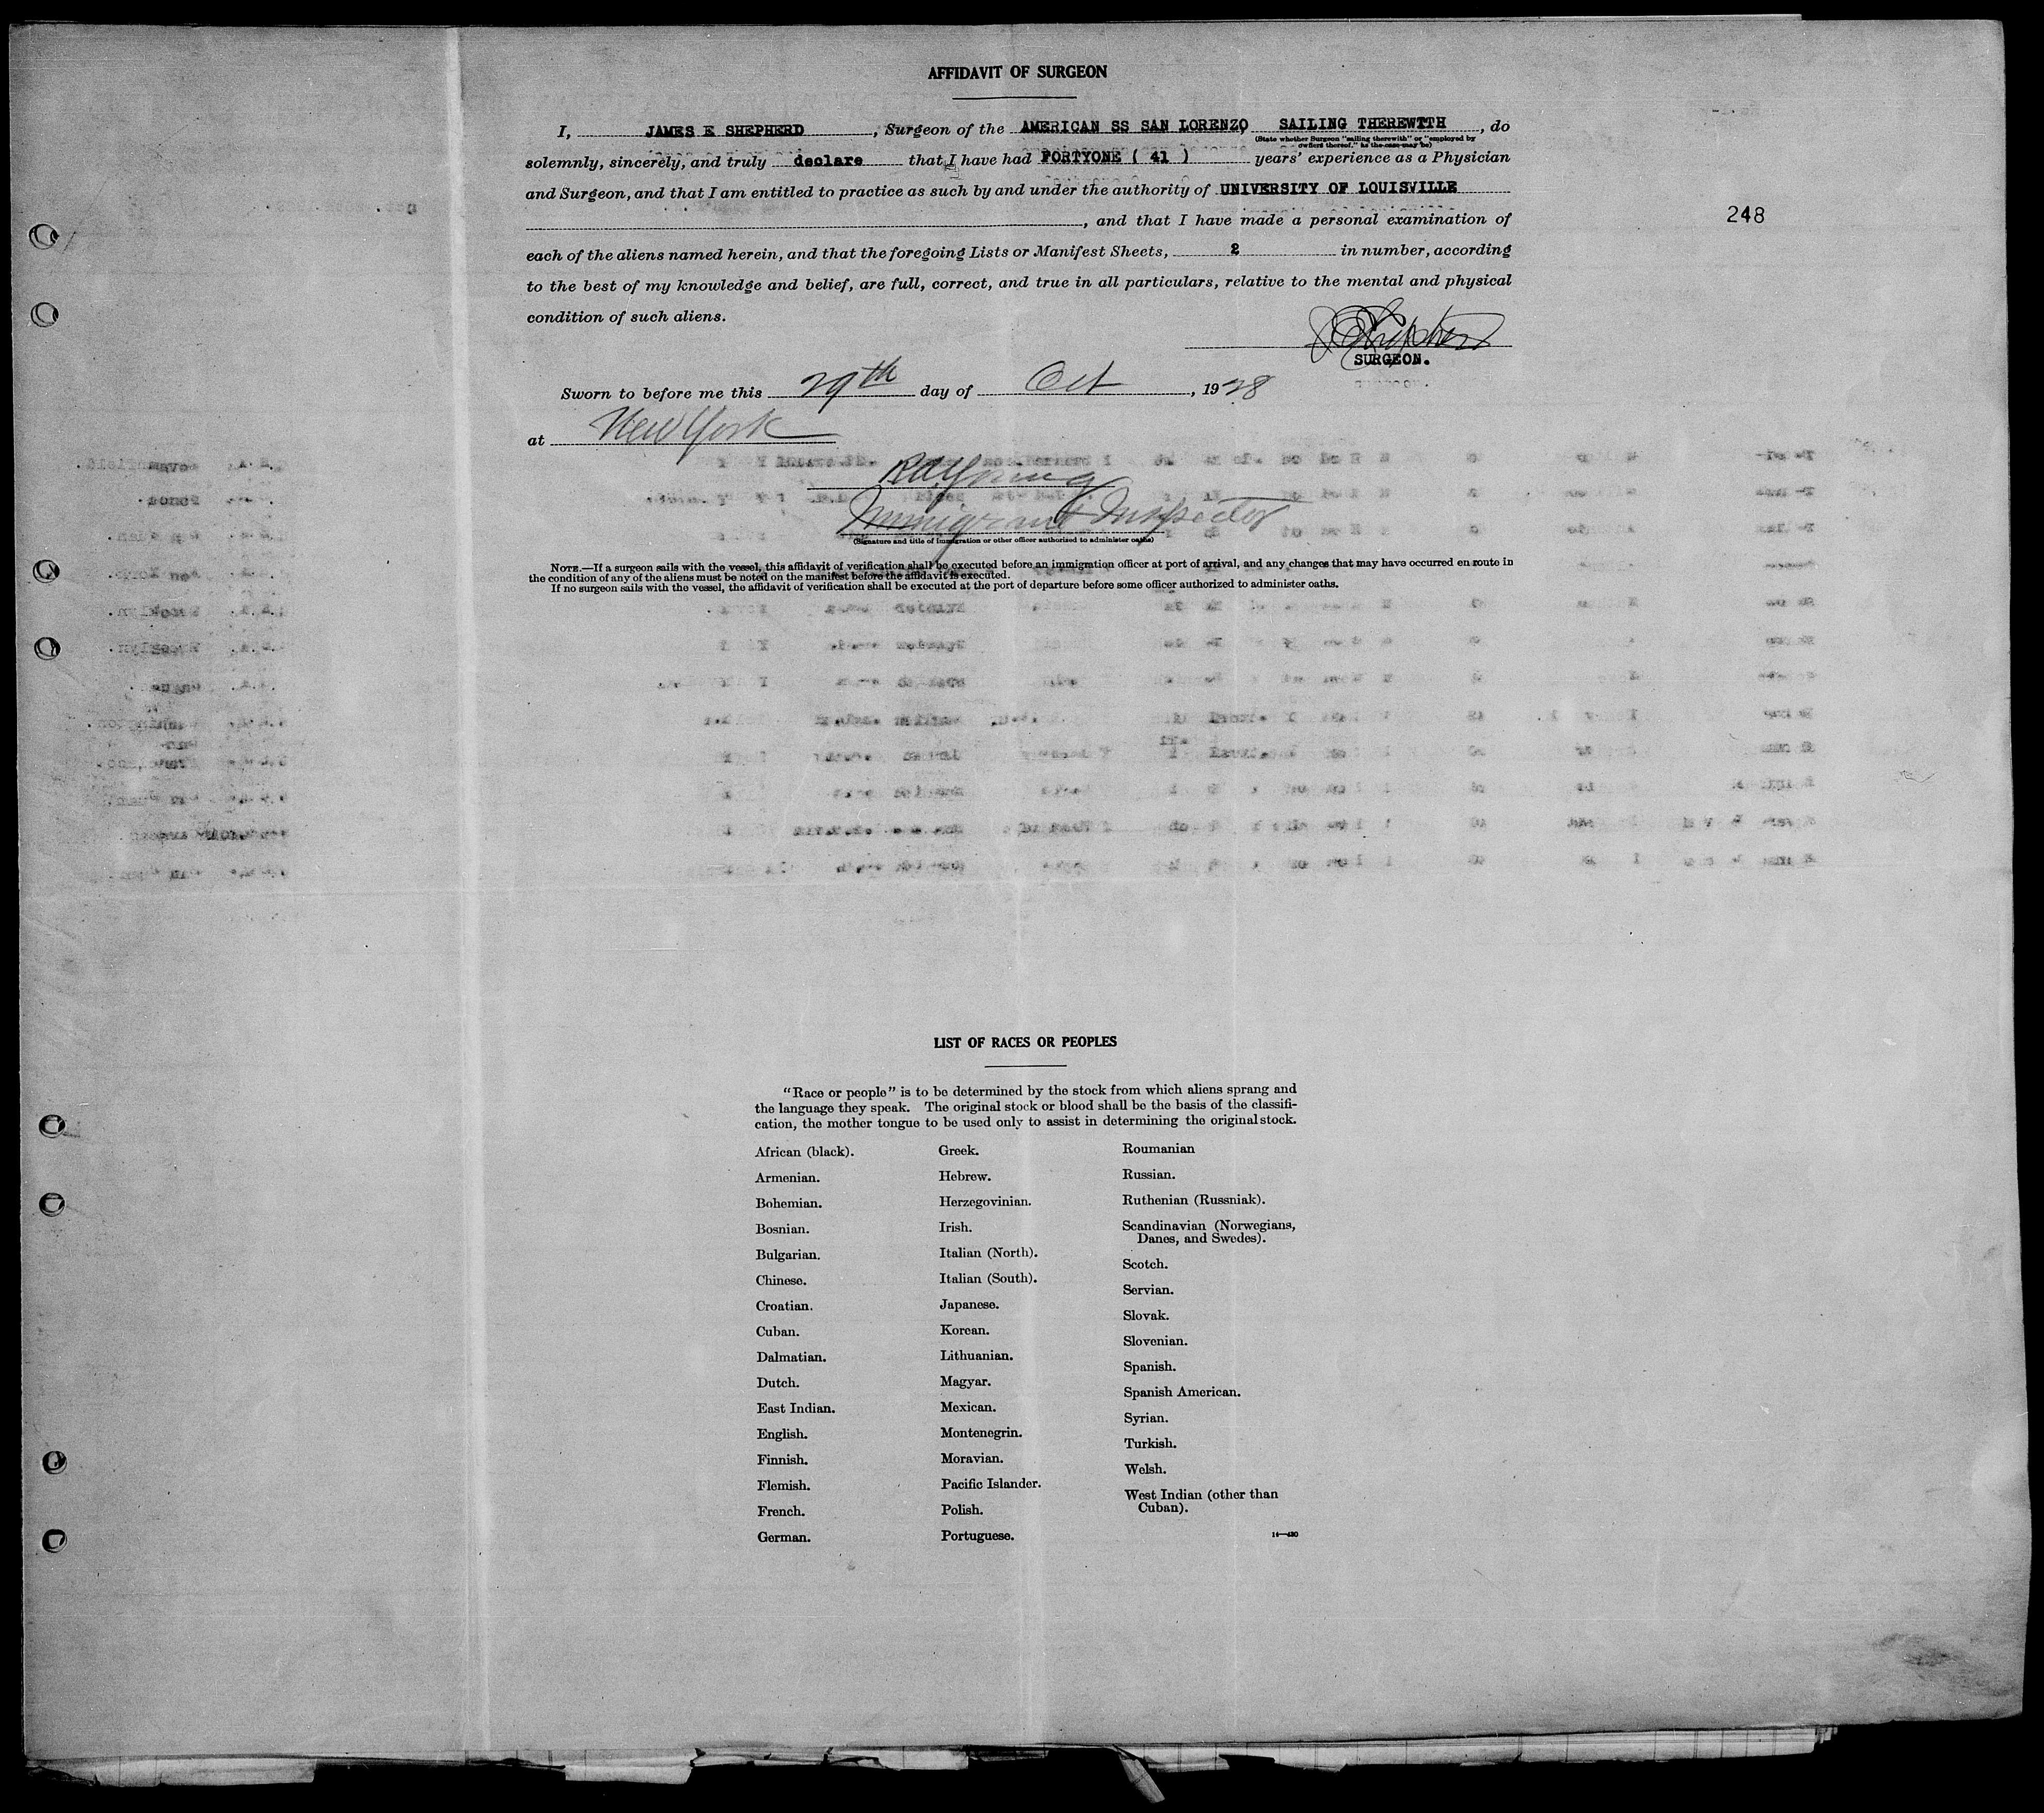 AFFIDAVIT OF SURGEON
I, JAMES E SHEPHERD, Surgeon of the AMERICAN SS SAN LORENZO SAILING THEREWITH, do
(State whether Surgeon "sailing therewith" or "employed by
owners thereof," as the case may be)
solemnly, sincerely, and truly declare that I have had FORTYONE ( 41 ) years' experience as a Physician
and Surgeon, and that I am entitled to practice as such by and under the authority of UNIVERSITY OF LOUISVILLE
, and that I have made a personal examination of
248
each of the aliens named herein, and that the foregoing Lists or Manifest Sheets, 2 in number, according
to the best of my knowledge and belief, are full, correct, and true in all particulars, relative to the mental and physical
condition of such aliens.
SURGEON.
Sworn to before me this 29th day of Oct, 1928
at New York
R A Young
Immigrant Inspector
(Signature and title of immigration or other officer authorized to administer oaths)
NOTE.—If a surgeon sails with the vessel, this affidavit of verification shall be executed before an immigration officer at port of arrival, and any changes that may have occurred en route in
the condition of any of the aliens must be noted on the manifest before the affidavit is executed.
If no surgeon sails with the vessel, the affidavit of verification shall be executed at the port of departure before some officer authorized to administer oaths.
LIST OF RACES OR PEOPLES
"Race or people" is to be determined by the stock from which aliens sprang and
the language they speak. The original stock or blood shall be the basis of the classifi-
cation, the mother tongue to be used only to assist in determining the original stock.
African (black).
Armenian.
Bohemian.
Bosnian.
Bulgarian.
Chinese.
Croatian.
Cuban.
Dalmatian.
Dutch.
East Indian.
English.
Finnish.
Flemish.
French.
German.
Greek.
Hebrew.
Herzegovinian.
Irish.
Italian (North).
Italian (South).
Japanese.
Korean.
Lithuanian.
Magyar.
Mexican.
Montenegrin.
Moravian.
Pacific Islander.
Polish.
Portuguese.
Roumanian
Russian.
Ruthenian (Russniak).
Scandinavian (Norwegians,
Danes, and Swedes).
Scotch.
Servian.
Slovak.
Slovenian.
Spanish.
Spanish American.
Syrian.
Turkish.
Welsh.
West Indian (other than
Cuban).
14—430